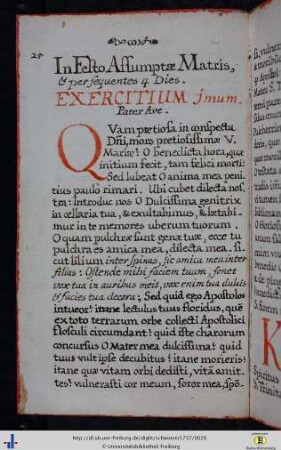 25
In Festo Assumptæ Matris,
& per sequentes 4 Dies.
EXERCITIUM jmum.
Pater Ave.
QVam pretiosa in conspectu
Dñi, mors pretiosissimæ V.
Mariæ! O benedicta hora, quæ
initium fecit, tam felici morti!
Sed lubeat O anima mea peni
tius paulo rimari. Ubi cubet dilecta nos,
tra: introduc nos O Dulcissima genitrix
in cellaria tua, & exultabimus, & lætabi,
mur in te memores uberum tuorum.
O quam pulchræ sunt genæ tuæ, ecce tu
pulchra es amica mea, dilecta mea. si,
cut lilium inter spinas, sic amica mea inter
filias: Ostende mihi faciem tuam, sonet
vox tua in auribus meis, vox enim tua dulcis
& facies tua decora; Sed quid ego Apostolos
intueor! itane lectulus tuus floridus, quẽ
ex toto terrarum orbe collecti Apostolici
flosculi circumdant! quid iste charorum
concursus O Mater mea dulcissima! quid
tuus vult ipse decubitus! itane morieris!
itane quæ vitam orbi dedisti, vitâ amit,
tes! vulnerasti cor meum, soror mea, spõ,
http://dl.ub.uni-freiburg.de/diglit/schwoerer1737/0026
© Universitätsbibliothek Freiburg